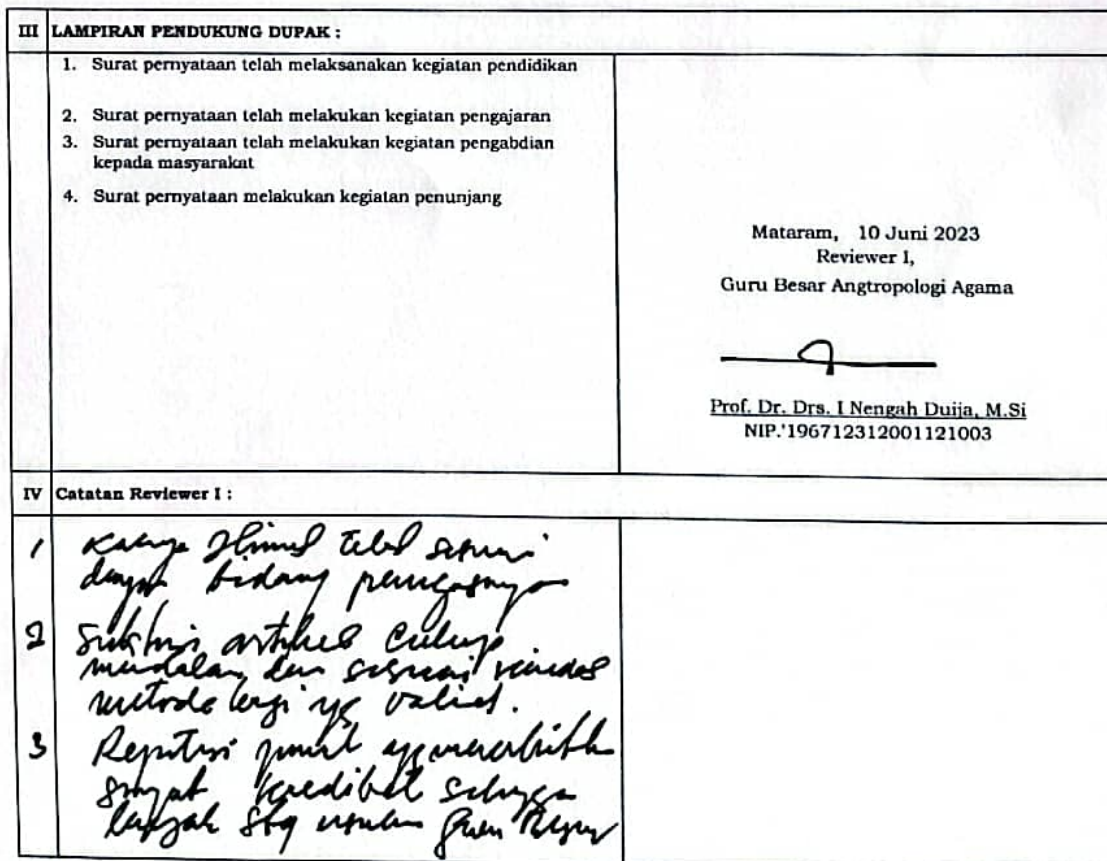 III LAMPIRAN PENDUKUNG DUPAK :
1. Surat pernyataan telah melaksanakan kegiatan pendidikan
2. Surat pernyataan telah melakukan kegiatan pengajaran
3. Surat pernyataan telah melakukan kegiatan pengabdian
kepada masyarakat
4. Surat pernyataan melakukan kegiatan penunjang
Mataram, 10 Juni 2023
Reviewer 1,
Guru Besar Angtropologi Agama
Prof. Dr. Drs. I Nengah Duija, M.Si
NIP.'196712312001121003
IV Catatan Reviewer I :
1 Karya Ilmiah telah sesuai
dengan bidang
2 artikel cukup
mendalam dan sesuai
metodologi yg valid.
3 Reputasi jurnal yg menerbitkan
sangat kredibel sehingga
layak sbg usulan Guru Besar